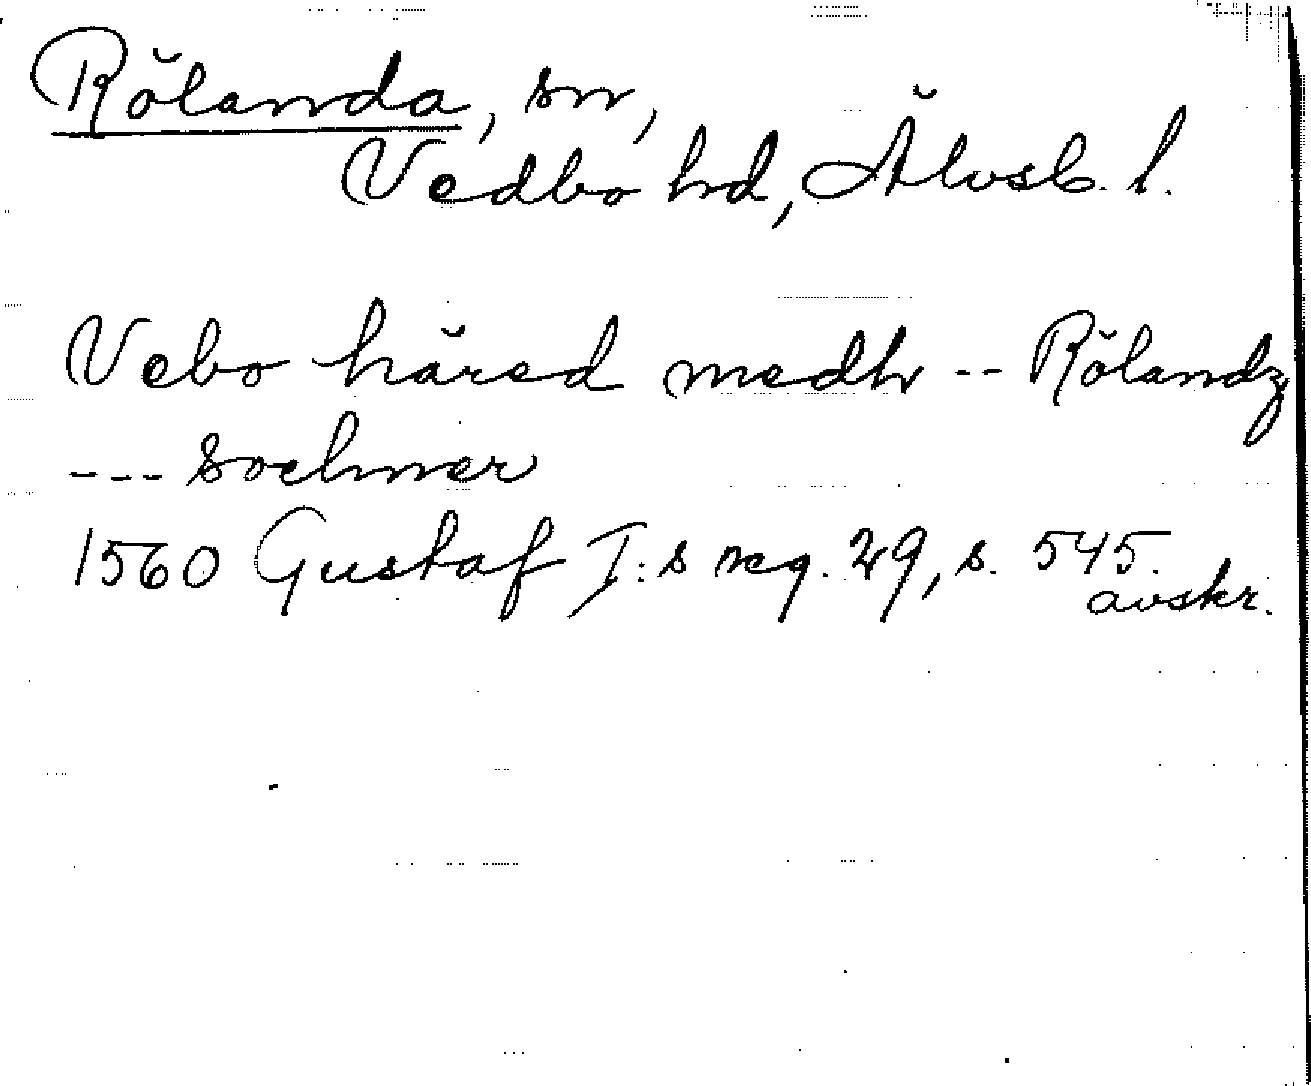 Rölanda, sn,
Vedbo hd, Älvsb. l.
Vebo härad medh -- Rölandz
--- sochner
1560 Gustaf I:s reg. 29, s. 545.
avskr.